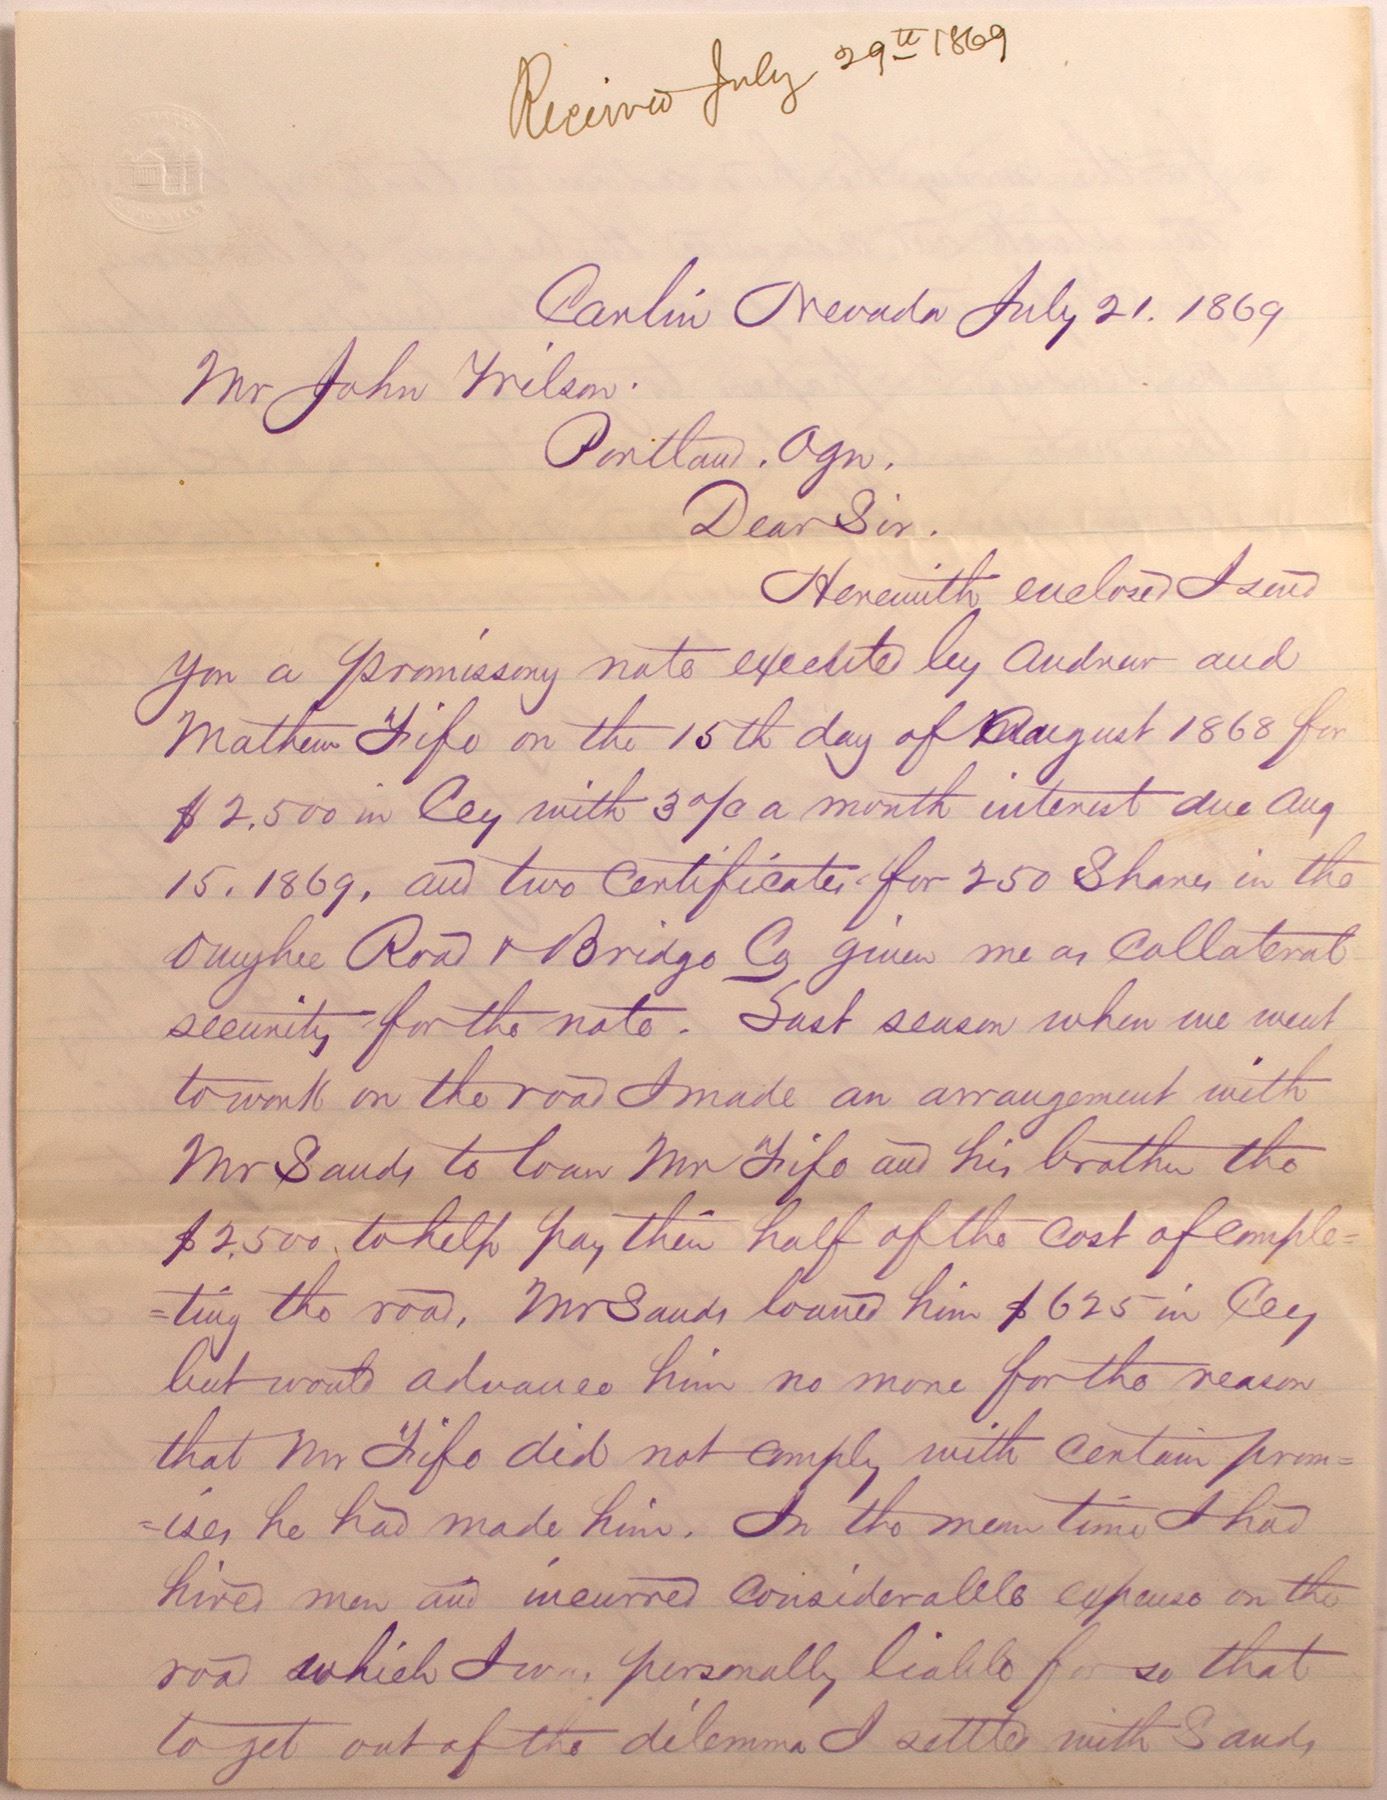 Received July 29th 1869
Carlin Nevada July 21. 1869
Mr John Wilson.
Portland. Ogn.
Dear Sir.
Herewith enclosed I send
you a promissory note executed by Andrew and
Mathew Fife on the 15th day of August 1868 for
$2,500 in Ccy with 3 o/o a month interest due Aug
15. 1869, and two certificates for 250 Shares in the
Owyhee Road & Bridge Co given me as Collateral
security for the note. Last season when we went
to work on the road I made an arrangement with
Mr Sands to loan Mr Fife and his brother the
$2,500 to help pay their half of the cost of comple=
=ting the road. Mr Sands loaned him $625 in Ccy
but would advance him no more for the reason
that Mr Fife did not comply with certain prom=
=ises he had made him. In the mean time I had
hired men and incurred considerable expense on the
road which I was personally liable for so that
to get out of the dilemma I settled with Sands